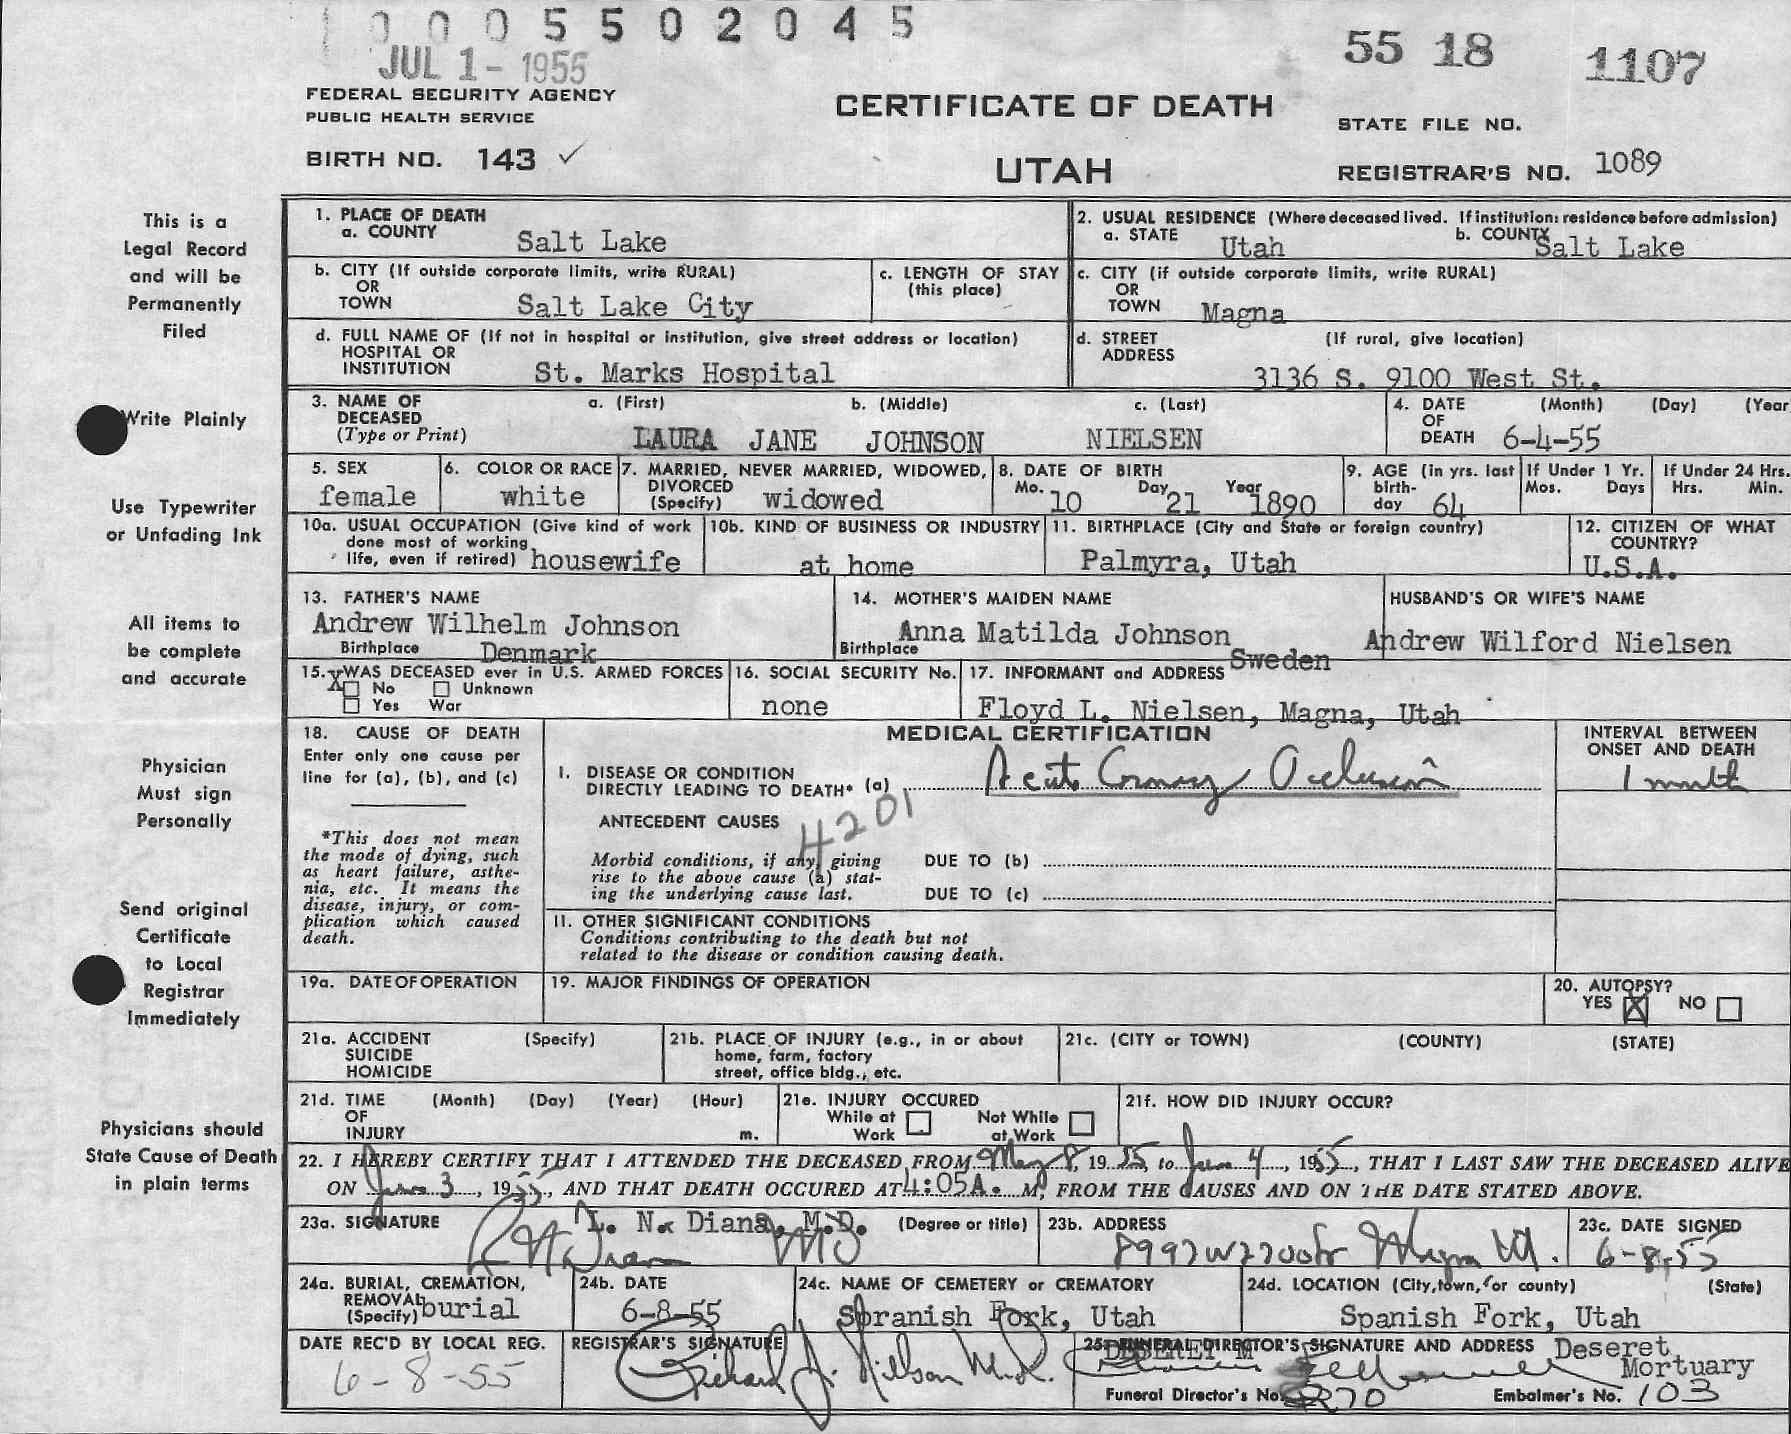 0 0 0 5 5 0 2 0 4 5
JUL 1 - 1955
55 18 1107
FEDERAL SECURITY AGENCY
PUBLIC HEALTH SERVICE
CERTIFICATE OF DEATH
STATE FILE NO.
BIRTH NO. 143 ✓
UTAH
REGISTRAR'S NO. 1089
This is a
Legal Record
and will be
Permanently
Filed
Write Plainly
Use Typewriter
or Unfading Ink
All items to
be complete
and accurate
Physician
Must sign
Personally
Send original
Certificate
to Local
Registrar
Immediately
Physicians should
State Cause of Death
in plain terms
1. PLACE OF DEATH
a. COUNTY Salt Lake
2. USUAL RESIDENCE (Where deceased lived. If institution: residence before admission)
a. STATE Utah b. COUNTY Salt Lake
b. CITY (If outside corporate limits, write RURAL)
OR
TOWN Salt Lake City
c. LENGTH OF STAY
(this place)
c. CITY (if outside corporate limits, write RURAL)
OR
TOWN Magna
d. FULL NAME OF (If not in hospital or institution, give street address or location)
HOSPITAL OR
INSTITUTION St. Marks Hospital
d. STREET (If rural, give location)
ADDRESS
3136 S. 9100 West St.
3. NAME OF a. (First) b. (Middle) c. (Last)
DECEASED
(Type or Print) LAURA JANE JOHNSON NIELSEN
4. DATE (Month) (Day) (Year
OF
DEATH 6-4-55
5. SEX
female
6. COLOR OR RACE
white
7. MARRIED, NEVER MARRIED, WIDOWED,
DIVORCED
(Specify) widowed
8. DATE OF BIRTH
Mo. 10 Day 21 Year 1890
9. AGE (in yrs. last
birth-
day 64
If Under 1 Yr.
Mos. Days
If Under 24 Hrs.
Hrs. Min.
10a. USUAL OCCUPATION (Give kind of work
done most of working
life, even if retired) housewife
10b. KIND OF BUSINESS OR INDUSTRY
at home
11. BIRTHPLACE (City and State or foreign country)
Palmyra, Utah
12. CITIZEN OF WHAT
COUNTRY?
U.S.A.
13. FATHER'S NAME
Andrew Wilhelm Johnson
Birthplace Denmark
14. MOTHER'S MAIDEN NAME
Anna Matilda Johnson
Birthplace Sweden
HUSBAND'S OR WIFE'S NAME
Andrew Wilford Nielsen
15. WAS DECEASED ever in U.S. ARMED FORCES
X No Unknown
Yes War
16. SOCIAL SECURITY No.
none
17. INFORMANT and ADDRESS
Floyd L. Nielsen, Magna, Utah
18. CAUSE OF DEATH
Enter only one cause per
line for (a), (b), and (c)
*This does not mean
the mode of dying, such
as heart failure, asthe-
nia, etc. It means the
disease, injury, or com-
plication which caused
death.
MEDICAL CERTIFICATION
I. DISEASE OR CONDITION
DIRECTLY LEADING TO DEATH* (a) Acute Coronary Occlusion
4201
ANTECEDENT CAUSES
Morbid conditions, if any, giving
rise to the above cause (a) stat-
ing the underlying cause last.
DUE TO (b)
DUE TO (c)
INTERVAL BETWEEN
ONSET AND DEATH
1 month
II. OTHER SIGNIFICANT CONDITIONS
Conditions contributing to the death but not
related to the disease or condition causing death.
19a. DATE OF OPERATION
19. MAJOR FINDINGS OF OPERATION
20. AUTOPSY?
YES X NO
21a. ACCIDENT (Specify)
SUICIDE
HOMICIDE
21b. PLACE OF INJURY (e.g., in or about
home, farm, factory
street, office bldg., etc.
21c. (CITY or TOWN) (COUNTY) (STATE)
21d. TIME (Month) (Day) (Year) (Hour)
OF
INJURY m.
21e. INJURY OCCURED
While at Work Not While at Work
21f. HOW DID INJURY OCCUR?
22. I HEREBY CERTIFY THAT I ATTENDED THE DECEASED FROM May 8, 1955, to June 4, 1955, THAT I LAST SAW THE DECEASED ALIVE
ON June 3, 1955, AND THAT DEATH OCCURED AT 4:05A. M, FROM THE CAUSES AND ON THE DATE STATED ABOVE.
23a. SIGNATURE L. N. Diana, M.D. (Degree or title)
MD
23b. ADDRESS
8997 W 2700 So Magna Ut.
23c. DATE SIGNED
6-8-55
24a. BURIAL, CREMATION,
REMOVAL
(Specify) burial
24b. DATE
6-8-55
24c. NAME OF CEMETERY or CREMATORY
Spranish Fork, Utah
24d. LOCATION (City, town, or county) (State)
Spanish Fork, Utah
DATE REC'D BY LOCAL REG.
6-8-55
REGISTRAR'S SIGNATURE
Richard J. Nelson M.D.
25. FUNERAL DIRECTOR'S SIGNATURE AND ADDRESS Deseret
DESERET M
Mortuary
Funeral Director's No. 270 Embalmer's No. 103